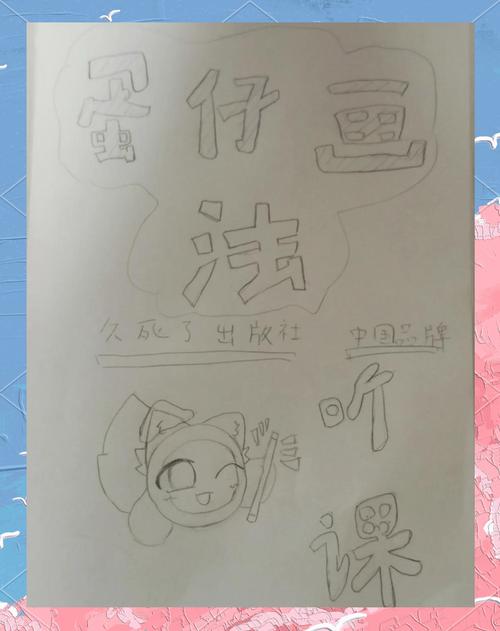 蛋仔画
法
久死了出版社 中国品牌
听
课